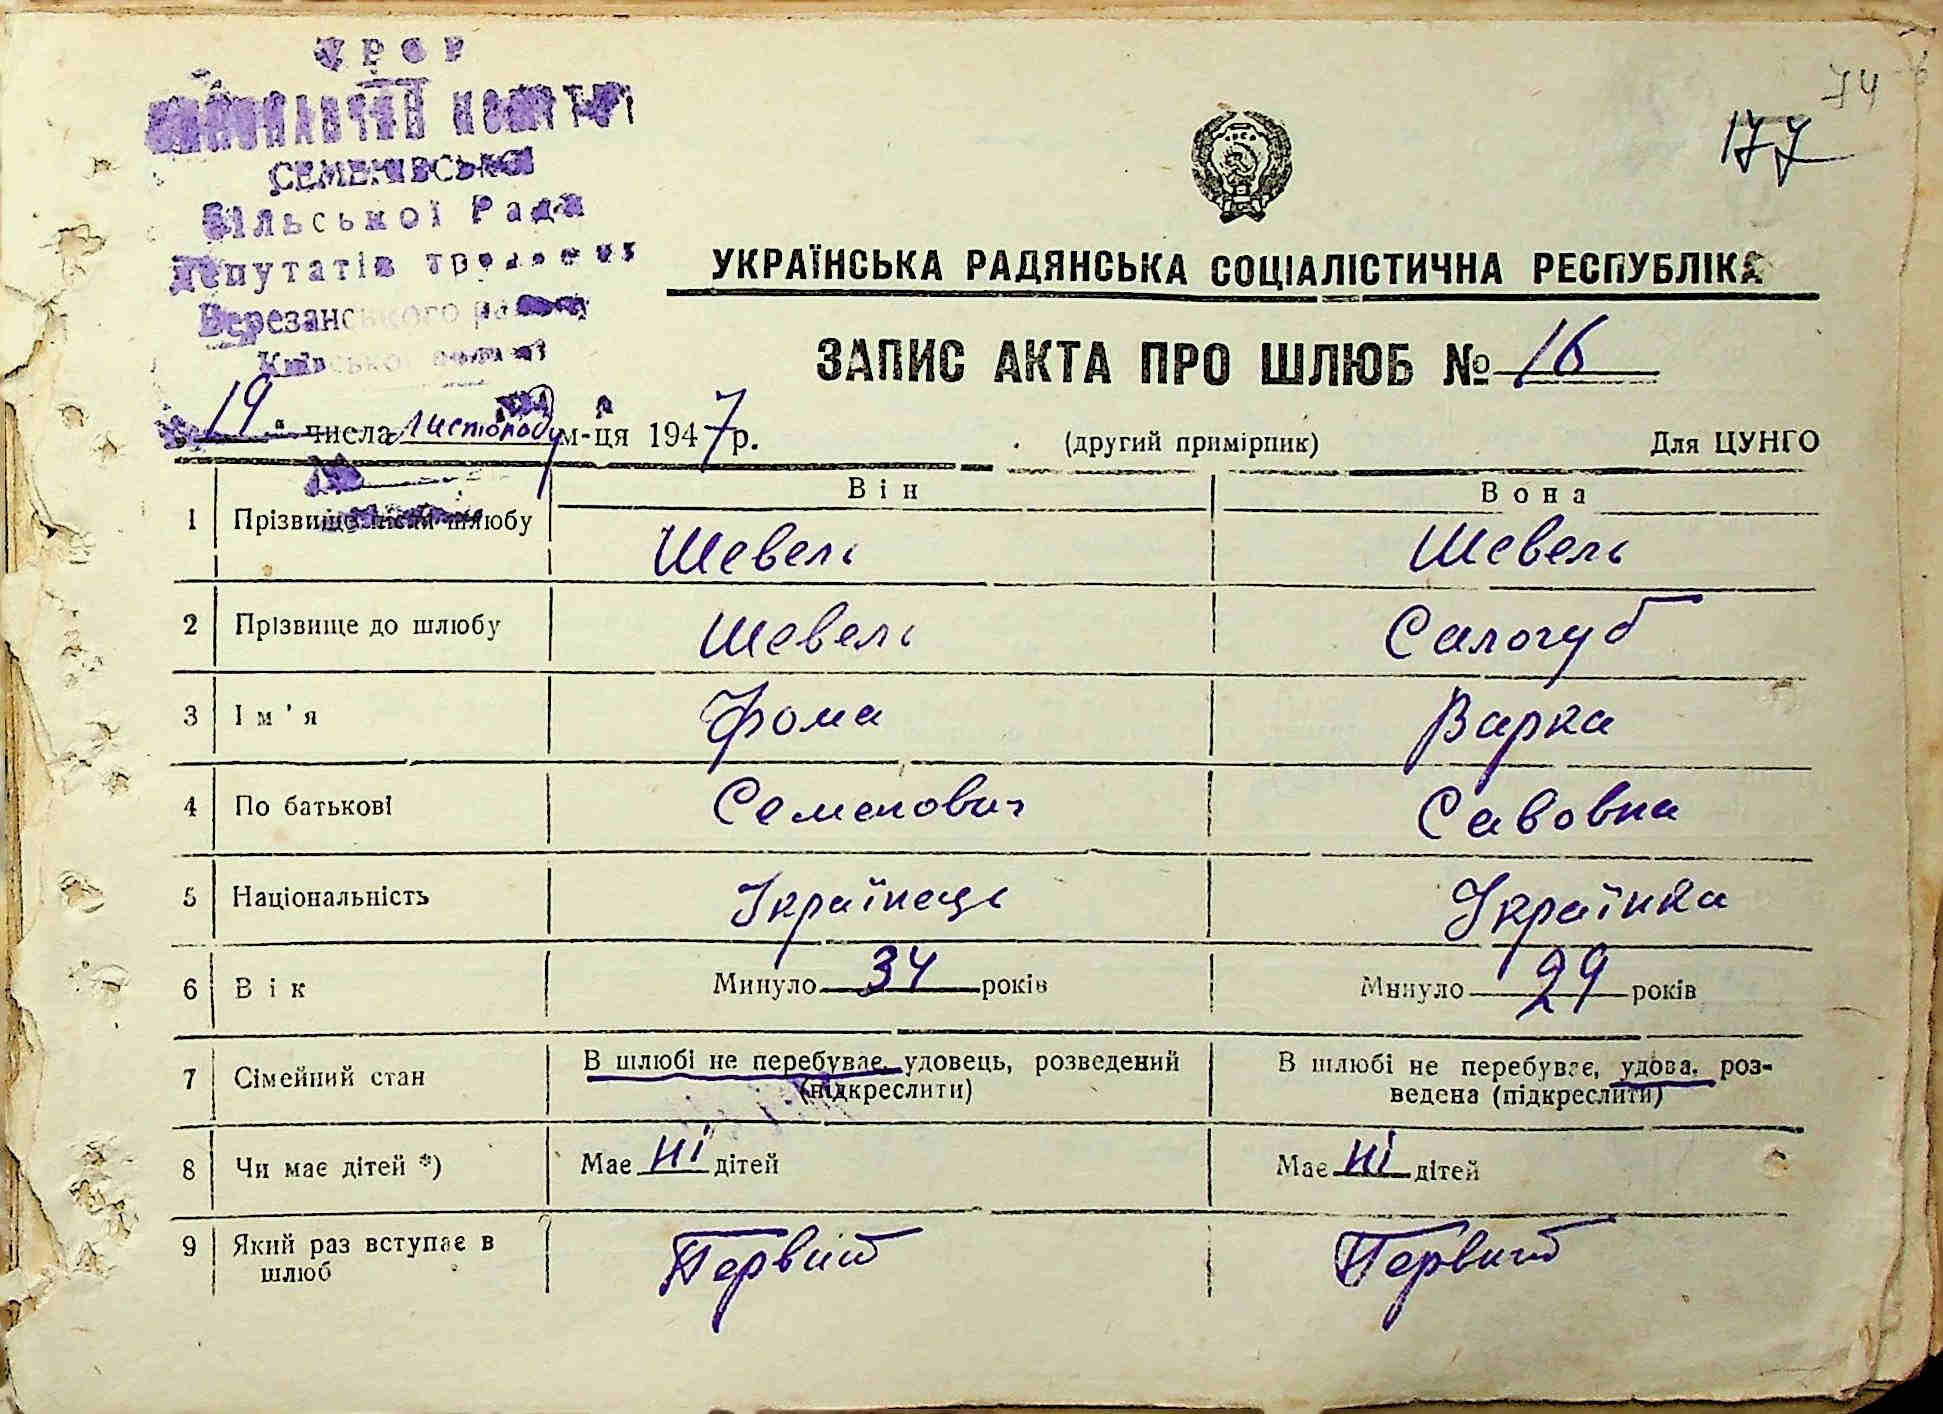 УРСР
ВИКОНАВЧИЙ КОМІТЕТ
СЕМЕНІВСЬКОЇ
Сільської Ради
Депутатів трудящих
Березанського району
Київської області
74
177
УКРАЇНСЬКА РАДЯНСЬКА СОЦІАЛІСТИЧНА РЕСПУБЛІКА
ЗАПИС АКТА ПРО ШЛЮБ № 16
„19“ числа Листопаду м-ця 1947 р.
(другий примірник)
Для ЦУНГО
Він Вона
1 Прізвище після шлюбу Шевель Шевель
2 Прізвище до шлюбу Шевель Салогуб
3 Ім'я Фома Варка
4 По батькові Семенович Савовна
5 Національність Українець Українка
6 Вік Минуло 34 років Минуло 29 років
7 Сімейний стан В шлюбі не перебуває, удовець, розведений В шлюбі не перебуває, удова, роз-
(підкреслити) ведена (підкреслити)
8 Чи має дітей *) Має ні дітей Має ні дітей
9 Який раз вступає в Первий Первий
шлюб